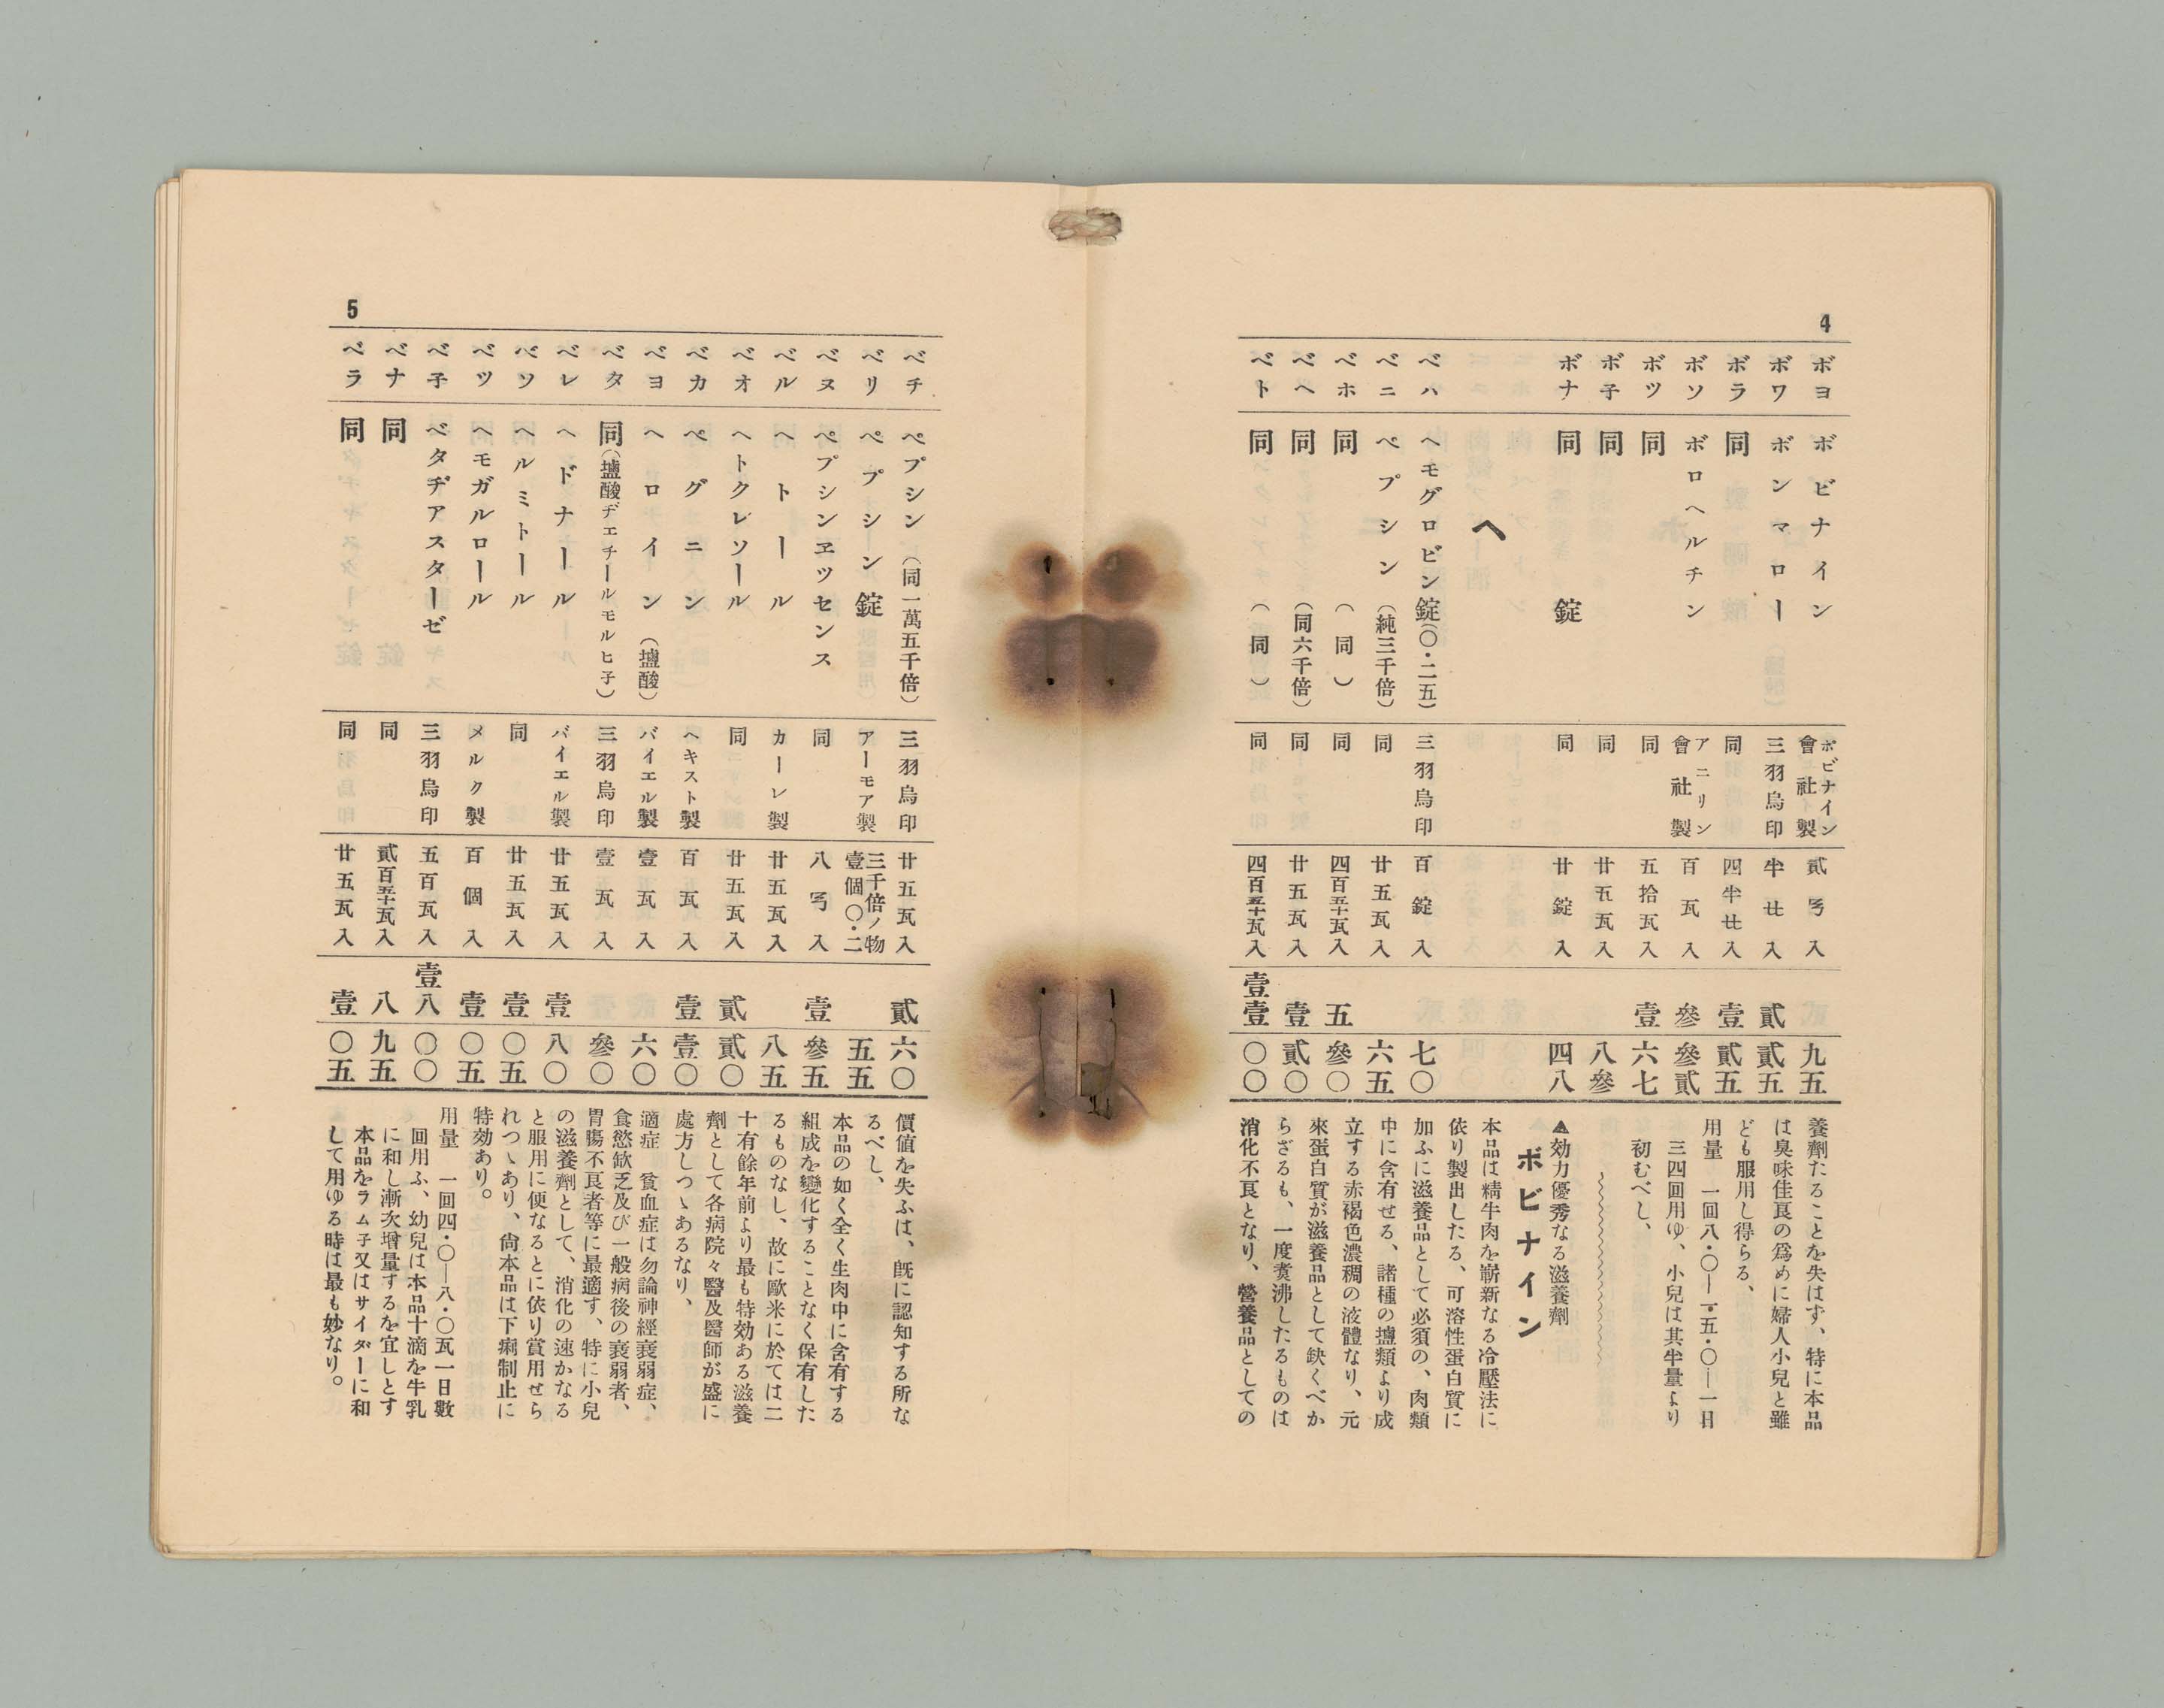 4
ボヨ ボビナイン ボビナイン會社製 貳弓入 九五
ボワ ボンマロー 三羽烏印 半〓入 貳 貳五
ボラ 同 同 四半〓入 壹 貳五
ボソ ボロヘルチン アニリン會社製 百瓦入 參 參貳
ボツ 同 同 五拾瓦入 壹 六七
ボ子 同 同 廿五瓦入 八參
ボナ 同 錠 同 廿錠入 四八
ヘ
ベハ ヘモグロビン錠(〇・二五) 三羽烏印 百錠入 七〇
ベニ ペプシン(純三千倍) 同 廿五瓦入 六五
ベホ 同(同) 同 四百五十瓦入 五 參〇
ベヘ 同(同六千倍) 同 廿五瓦入 壹 貳〇
ベト 同(同) 同 四百五十瓦入 壹壹 〇〇
養劑たることを失はず、特に本品
は臭味佳良の爲めに婦人小兒と雖
ども服用し得らる、
用量 一回八・〇—一五・〇—一日
三四回用ゆ、小兒は其半量より
初むべし、
▲効力優秀なる滋養劑
ボビナイン
本品は精牛肉を嶄新なる冷壓法に
依り製出したる、可溶性蛋白質に
加ふに滋養品として必須の、肉類
中に含有せる、諸種の塩類より成
立する赤褐色濃稠の液體なり、元
來蛋白質が滋養品として鈌くべか
らざるも、一度煑沸したるものは
消化不良となり、營養品としての
5
ベチ ペプシン(同一萬五千倍) 三羽烏印 廿五瓦入 貳 六〇
ベリ ペプシン錠 アーモア製 三千倍ノ物壹個〇・二 五五
ベヌ ペプシンヱツセンス 同 八弓入 壹 參五
ベル ヘトール カーレ製 廿五瓦入 八五
ベオ ヘトクレソール 同 廿五瓦入 貳 貳〇
ベカ ペグニン ヘキスト製 百瓦入 壹 壹〇
ベヨ ヘロイン(塩酸) バイエル製 壹瓦入 六〇
ベタ 同(塩酸ヂエチールモルヒ子) 三羽烏印 壹瓦入 參〇
ベレ ヘドナール バイエル製 廿五瓦入 壹 八〇
ベソ ヘルミトール 同 廿五瓦入 壹 〇五
ベツ ヘモガルロール メルク製 百個入 壹 〇五
ベ子 ベタヂアスターゼ 三羽烏印 五百瓦入 壹八 〇〇
ベナ 同 同 貳百五十瓦入 八 九五
ベラ 同 同 廿五瓦入 壹 〇五
價値を失ふは、旣に認知する所な
るべし、
本品の如く全く生肉中に含有する
組成を變化することなく保有した
るものなし、故に歐米に於ては二
十有餘年前より最も特効ある滋養
劑として各病院々醫及醫師が盛に
處方しつゝあるなり、
適症 貧血症は勿論神經衰弱症、
食慾欽乏及び一般病後の衰弱者、
胃膓不良者等に最適す、特に小兒
の滋養劑として、消化の速かなる
と服用に便なるとに依り賞用せら
れつゝあり、尙本品は下痢制止に
特効あり。
用量 一回四・〇—八・〇瓦一日數
回用ふ、幼兒は本品十滴を牛乳
に和し漸次增量するを宜しとす
本品をラム子又はサイダーに和
して用ゆる時は最も妙なり。